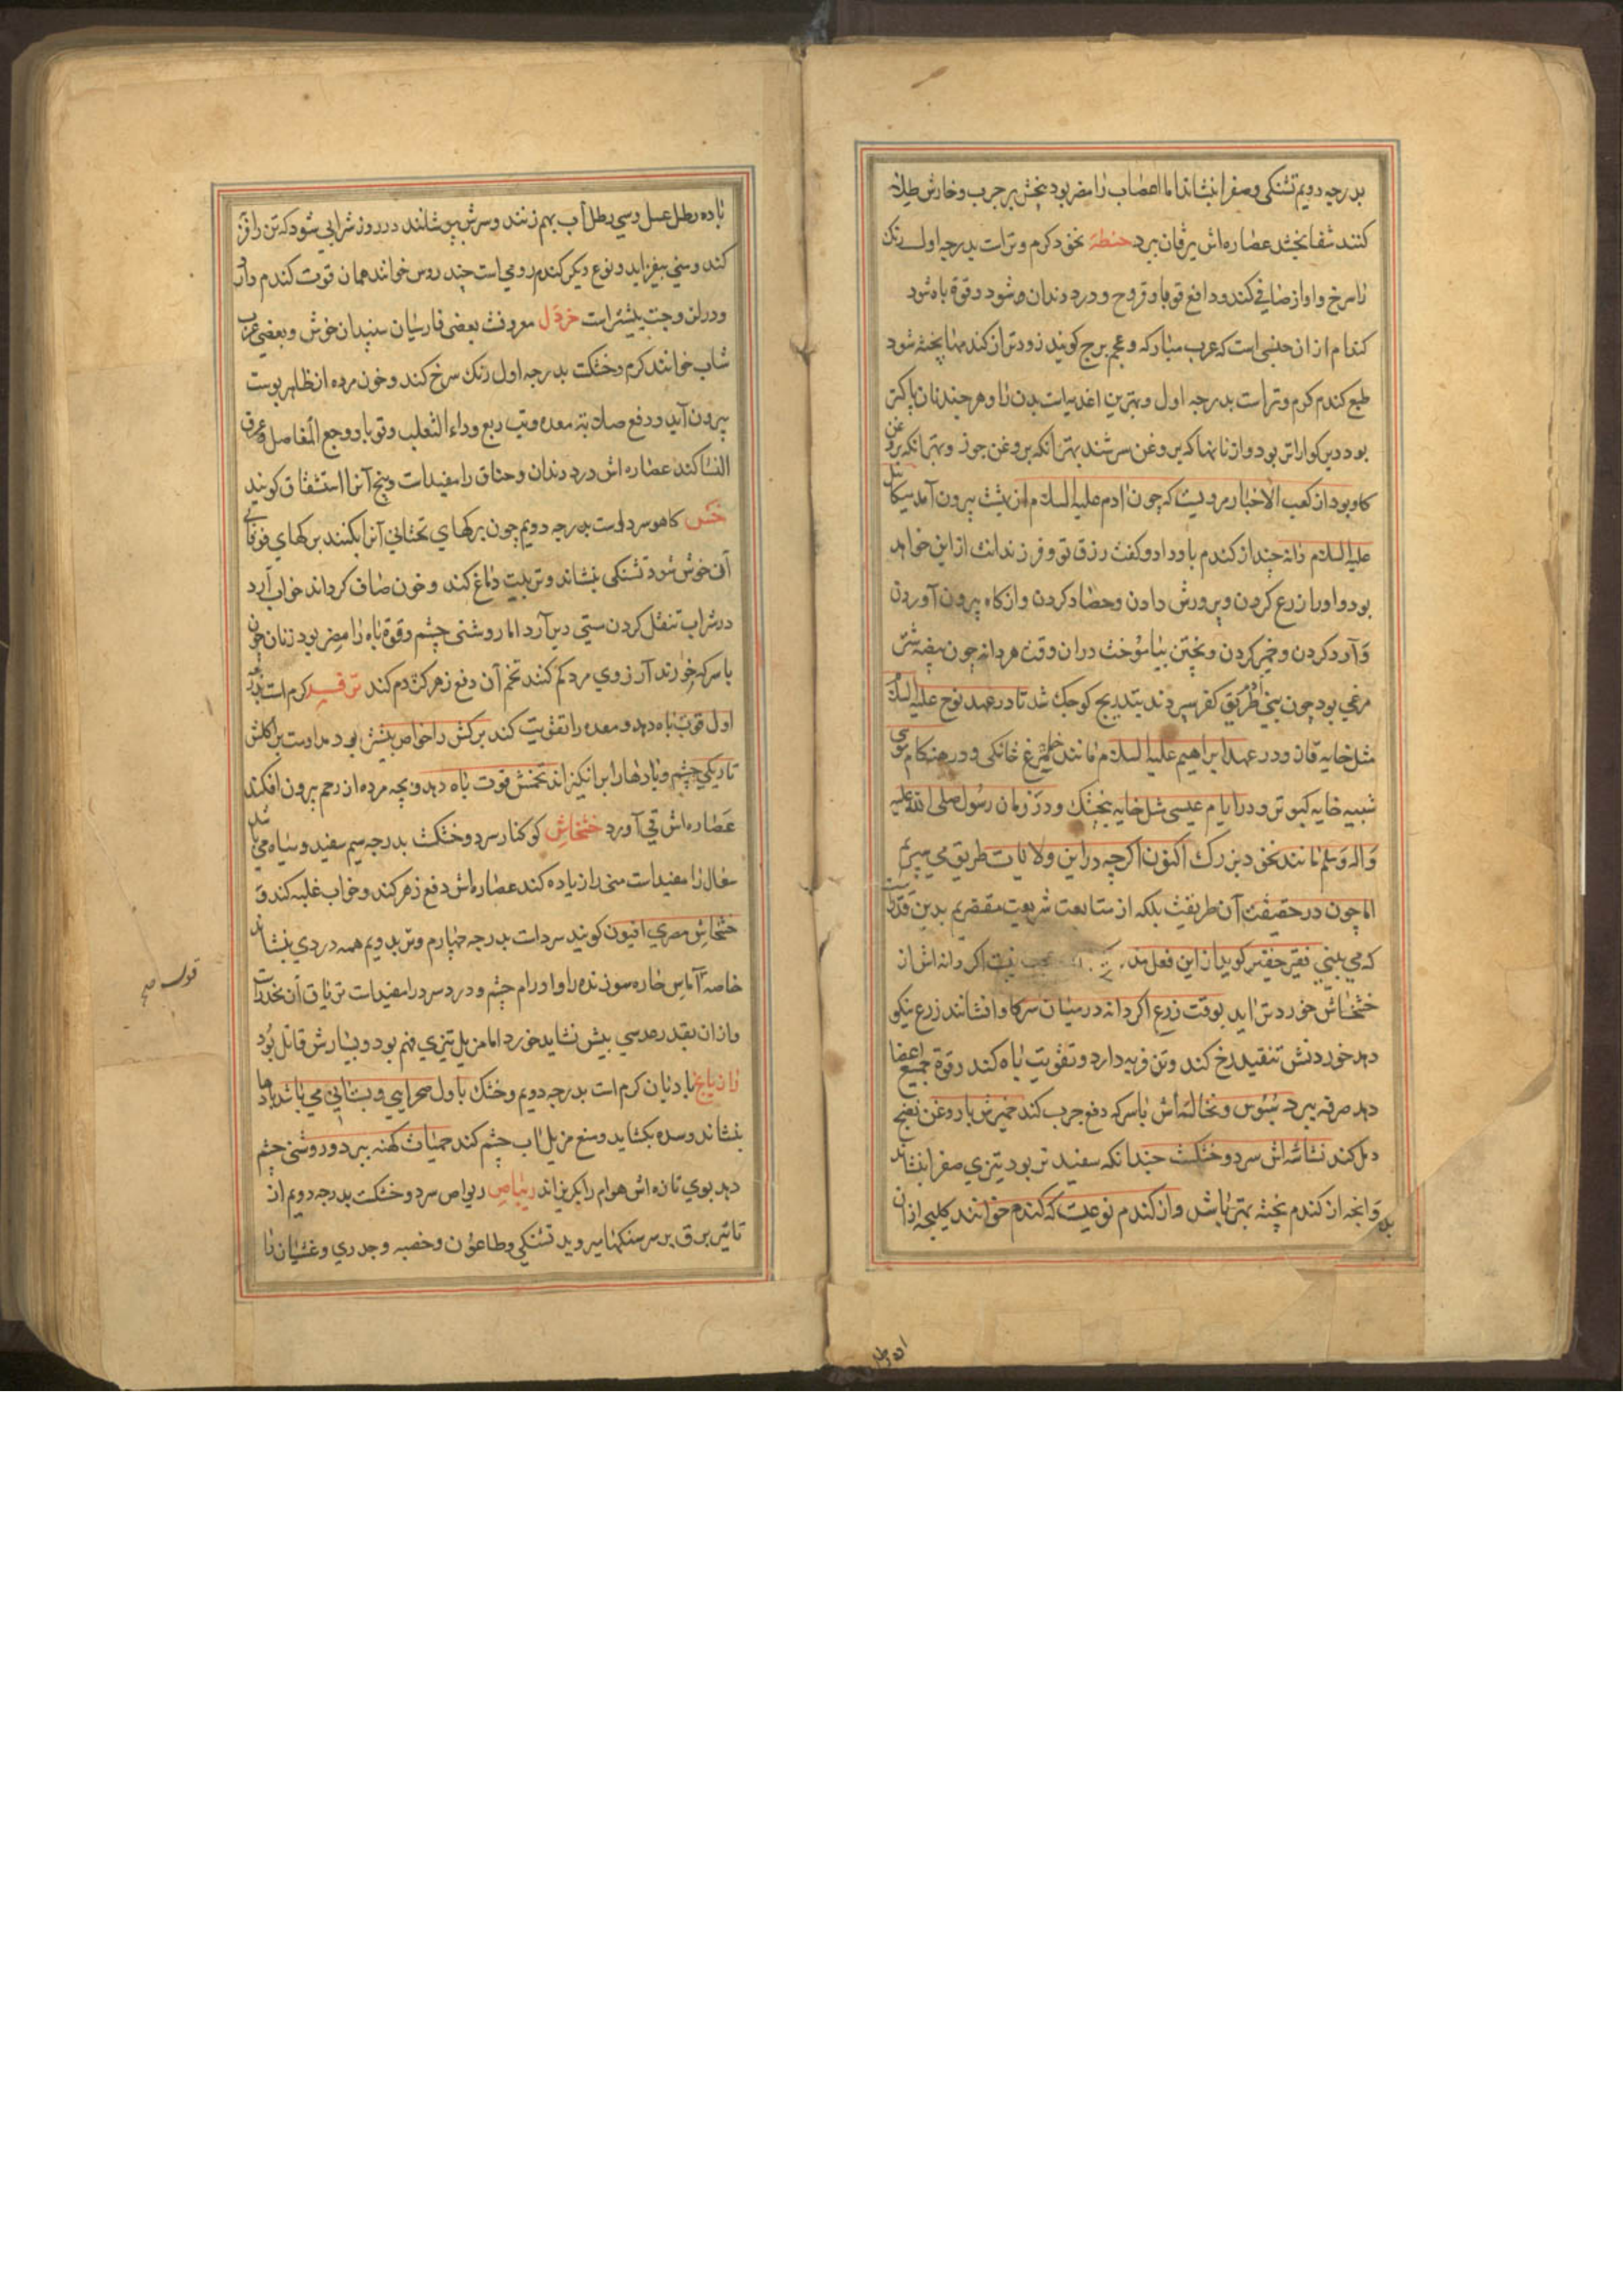 بدرجه دویم تشنکی و صفرا بنشاند اما اعصاب را مضر بود بخش بر جرب و خارش طلا
کنند شفا بخشد عصاره اش یرقان ببرد حنطة نخود کرم و تر است بدرجه اول رنک
را سرخ و اواز صافی کند و دافع قوبا و قروح و درد دندان و شود و قوة باه شود
کندم از ان جنسی است که عرب مبارکه و عجم برج کویند زودتر از کندمها پخته شود
طبع کندم کرم و تر است بدرجه اول و بهترین اغذیهاست بدن را و هر چند نان پاکتر
بود دیر کوارتر بود و از نانها که بروغن سرشند بهتر انکه بروغن جوز و بهتر انکه بروغن
کاو بود از کعب الاخبار مرویست که چون ادم علیه السلام از بهشت بیرون آمد میکائیل
علیه السلام دانه چند از کندم باو داد و کفت رزق تو و فرزندانت از این خواهد
بود و او را زرع کردن و پرورش دادن و حصاد کردن و از کاه بیرون آوردن
و آرد کردن و خمیر کردن و پختن بیاموخت دران وقت هر دانه چون بیضه شتر
مرغی بود چون بنی ادم طریق کفر سپردند بتدریج کوچک شد تا در عهد نوح علیه السلام
مثل خایه قاز و در عهد ابراهیم علیه السلام مانند خایه مرغ خانکی و در هنکام موسی
شبیه خایه کبوتر و در ایام عیسی مثل خایه بنجشک و در زمان رسول صلی الله علیه
و اله و سلم مانند نخود بزرک اکنون اکرچه در این ولایات طریق می سپریم
اما چون در حقیقت آن طریق نیست بلکه از متابعت شریعت مقصریم بدین قدر است
که می بینی فقیر حقیر کوید از این فعل عجب نیست اکر دانه اش از
خشخاش خوردتر اید بوقت زرع اکر دانه در میان سرکاو افشانند زرع نیکو
دهد خوردنش تنقیه رخ کند و تن فربه دارد و تقویت باه کند و قوة جمیع اعضا
دهد صرفه ببرد سبوس و نخاله اش با سرکه دفع جرب کند خمیرش با روغن نضج
دمل کند نشاسه اش سرد و خشکست چندانکه سفیدتر بود تیزی صفرا بنشاند
و انچه از کندم پخته بهتر باشد و از کندم نوعیست که کندم خوانند کلیچه از ان
باده رطل عسل و سی رطل آب بهم زنند و سرش بپوشانند در دو روز شرابی شود که تن را فربه
کند و منی بیفزاید و نوع دیکر کندم رومی است چند روس خوانند همان قوت کندم دارد
و در لزوجت بیشتر است خردل معروفست بعضی فارسیان سپندان خوش و بعضی عرب
شاب خوانند کرم و خشکست بدرجه اول رنک سرخ کند و خون مرده از ظاهر پوست
بیرون آید و دفع صلابة معده و تب ربع و داء الثعلب و قوبا و وجع المفاصل و عرق
النسا کند عصاره اش درد دندان و خناق را مفید است و بیخ آنرا استشقاق کویند
خس کاهو سرد و تر است بدرجه دویم چون برکهای تحتانی آنرا بکنند برکهای فوقانی
آن خوش شود تشنکی بنشاند و تربیت دماغ کند و خون صاف کرداند خواب آرد
در شراب تنقل کردن مستی دیر آرد اما روشنی چشم و قوة باه را مضر بود زنان چون
با سرکه خورند آرزوی مرد کم کند تخم آن دفع زهر کژدم کند کرم است بدرجه
اول قوت باه دهد و معده را تقویت کند برکش را خواص بیشتر بود مداومت بر اکلش
تاریکی چشم و بادها را برانکیزاند تخمش قوت باه دهد و بچه مرده از رحم بیرون افکند
عصاره اش قی آورد خشخاش کوکنار سرد و خشکست بدرجه سیم سفید و سیاه می باشد
سعال را مفید است منی را زیاده کند عصاره اش دفع زهر کند و خواب غلبه کند و
خشخاش مصری افیون کویند سرد است بدرجه چهارم و تر بدویم همه دردی بنشاند
خاصه آماس حاره سوزنده را و اورام چشم و درد سر را مفید است تریاق آن مخدرات
و ازان بقدر عدسی بیش نشاید خورد اما مزیل تیزی فهم بود و بسیارش قاتل بود
رازیانج بادیان کرم است بدرجه دویم و خشک باول صحرایی و بستانی می باشد بادها
بنشاند و سده بکشاید و منع مزیل آب چشم کند حمیات کهنه ببرد و روشنی چشم
دهد بوی تازه اش هوام را بکریزاند ریباص ریواص سرد و خشکست بدرجه دویم از
تاثیر برق بر سر سنکها میروید تشنکی و طاعون و حصبه و جدری و غثیان را